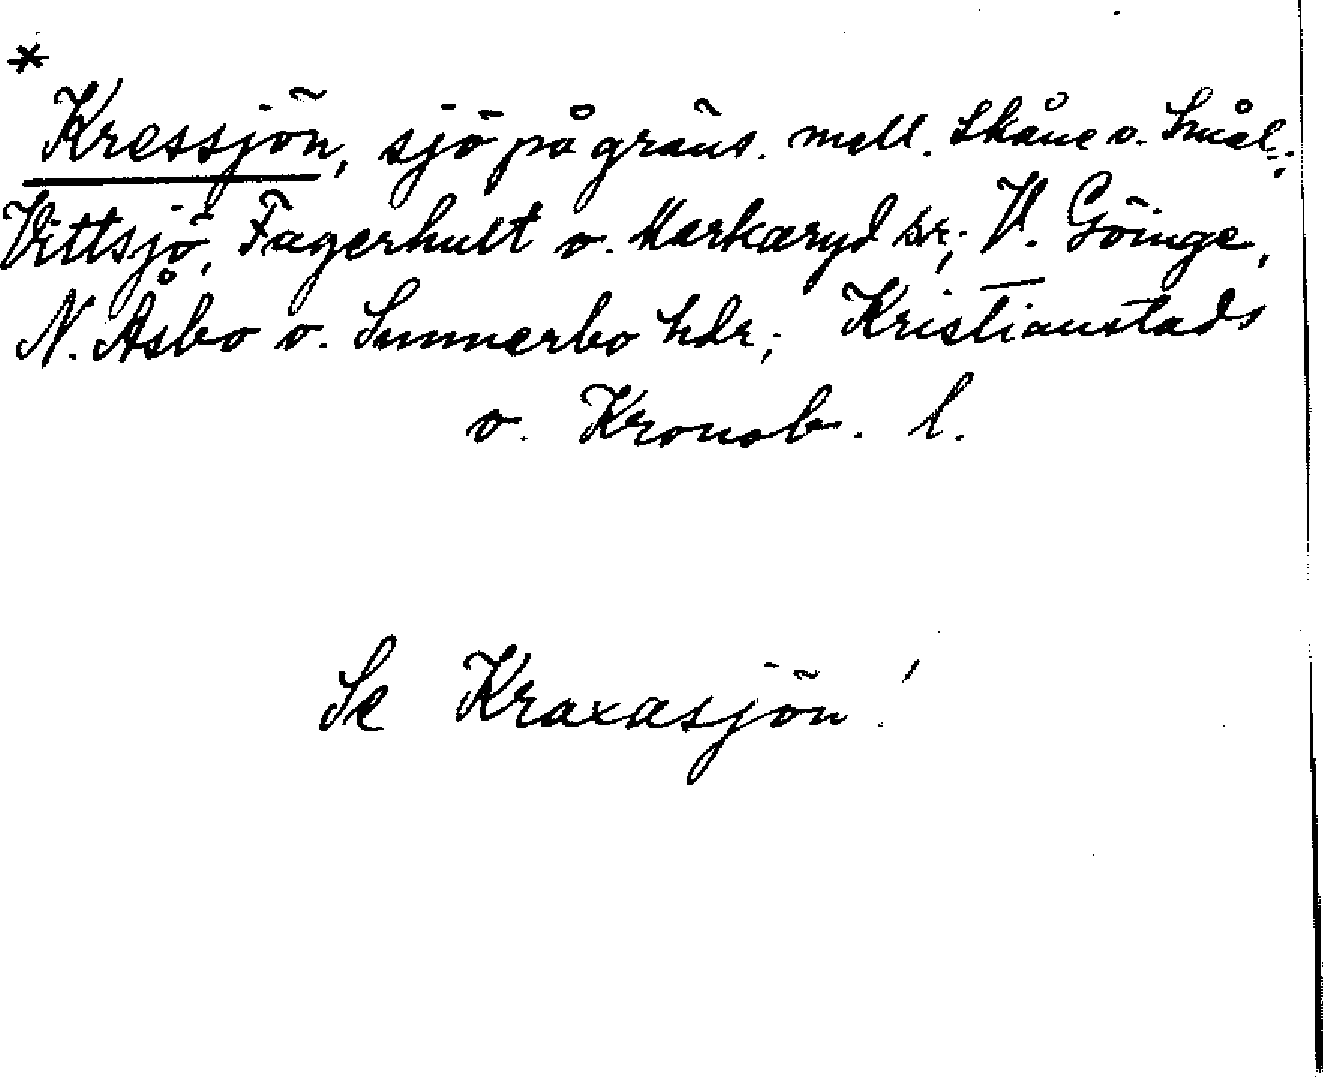 *
Kressjön, sjö på gräns. mell. Skåne o. Smål.;
Vittsjö, Fagerhult o. Markaryd snr; V. Göinge,
N. Åsbo o. Sunnerbo hdr; Kristianstads
o. Kronob. l.
Se Kraxasjön!